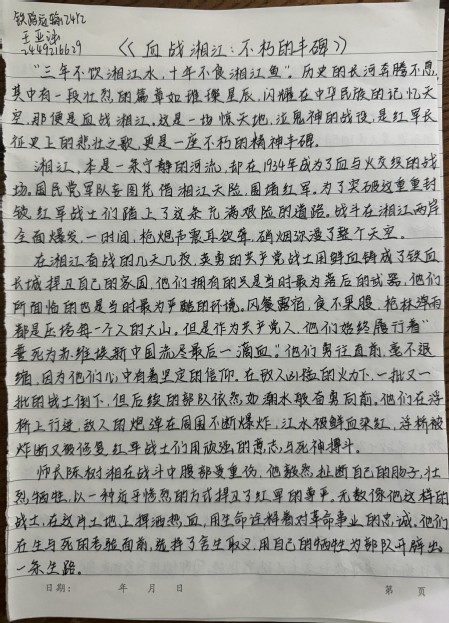 铁路运输2412
王亚涵
2449216629
《血战湘江：不朽的丰碑》
“三年不饮湘江水，十年不食湘江鱼”。历史的长河奔腾不息，
其中有一段壮烈的篇章如璀璨星辰，闪耀在中华民族的记忆天
空，那便是血战湘江，这是一场惊天地，泣鬼神的战役，是红军长
征史上的悲壮之歌，更是一座不朽的精神丰碑。
湘江，本是一条宁静的河流，却在1934年成为了血与火交织的战
场。国民党军队企图凭借湘江天险，围堵红军。为了突破这重重封
锁，红军战士们踏上了这条充满艰险的道路。战斗在湘江两岸
全面爆发，一时间，枪炮声震耳欲聋，硝烟弥漫了整个天空。
在湘江血战的几天几夜，英勇的共产党战士用鲜血铸成了铁血
长城捍卫自己的家园，他们拥有的只是当时最为落后的武器，他们
所面临的也是当时最为严酷的环境。风餐露宿，食不果腹，枪林弹雨
都是压倒每一个人的大山。但是作为共产党人，他们始终履行着“
要死为苏维埃新中国流尽最后一滴血”。他们勇往直前，毫不退
缩，因为他们心中有着坚定的信仰。在敌人凶猛的火力下，一批又一
批的战士倒下，但后续的部队依然如潮水般奋勇向前。他们在浮
桥上行进，敌人的炮弹在周围不断爆炸，江水被鲜血染红，浮桥被
炸断又被修复，红军战士们用顽强的意志与死神搏斗。
师长陈树湘在战斗中腹部受重伤，他毅然扯断自己的肠子，壮
烈牺牲，以一种近乎惨烈的方式捍卫了红军的尊严。无数像他这样的
战士，在这片土地上挥洒热血，用生命诠释着对革命事业的忠诚。他们
在生与死的考验面前，选择了舍生取义，用自己的牺牲为部队开辟出
一条生路。
日期： 年 月 日 第 页